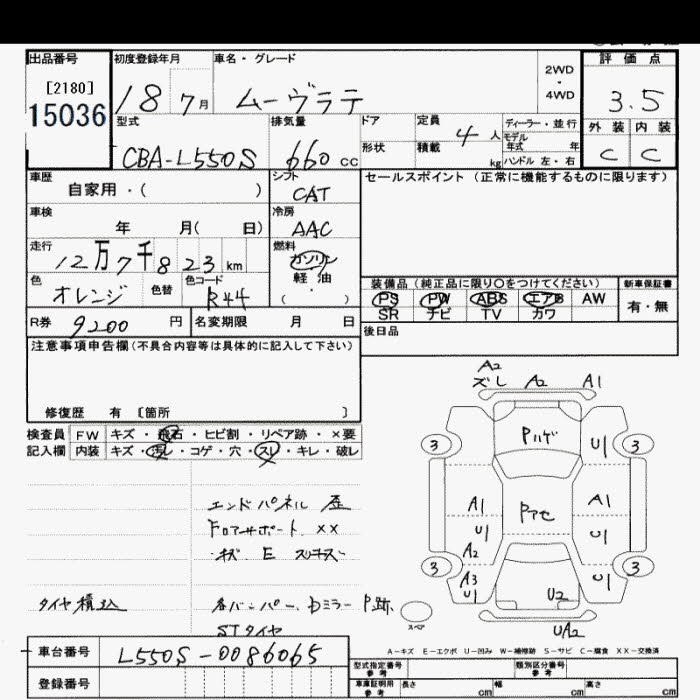 出品番号 初度登録年月 車名・グレード 2WD ・ 4WD 評価点
[2180]
15036 18 7月 ムーヴラテ 3.5
型式 排気量 ドア 定員 4人 ディーラー・並行 外装 内装
モデル年式 年
CBA-L550S 660cc 形状 積載 kg ハンドル 左・右 C C
車歴 シフト セールスポイント (正常に機能するものに限ります)
自家用・( ) CAT
車検 冷房
年 月( 日) AAC
走行 燃料
12万7千823km ガソリン
色 色替 色コード 軽油 装備品 (純品に限り○をつけてください) 新車保証書
オレンジ R44 ( ・ ) PS PW ABS エアB AW 有・無
SR ナビ TV カワ
R券 9200円 名変期限 月 日 後日品
注意事項申告欄(不具合内容等は具体的に記入して下さい)
修復歴 有 [箇所 ]
検査員 FW キズ・飛石・ヒビ割・リペア跡・×要
記入欄 内装 キズ・汚レ・コゲ・穴・スレ・キレ・破レ
A2
ズレ A2 A1
Pハゲ
3 U1 3
A1 Pアセ A1
U1 U1
A2
3 A3 U1 3
U1 U2
UA2
スペア
エンドパネル 歪
Fロアサポート ××
キズ E
タイヤ積込 各バンパー、Dミラー P跡
STタイヤ
A-キズ E-エクボ U-凹み W-補修跡 S-サビ C-腐食 XX-交換済
車台番号 L550S-0086065 型式指定番号 参考 類別区分番号 参考
登録番号 車庫証明用 参考 長さ cm 幅 cm 高さ cm